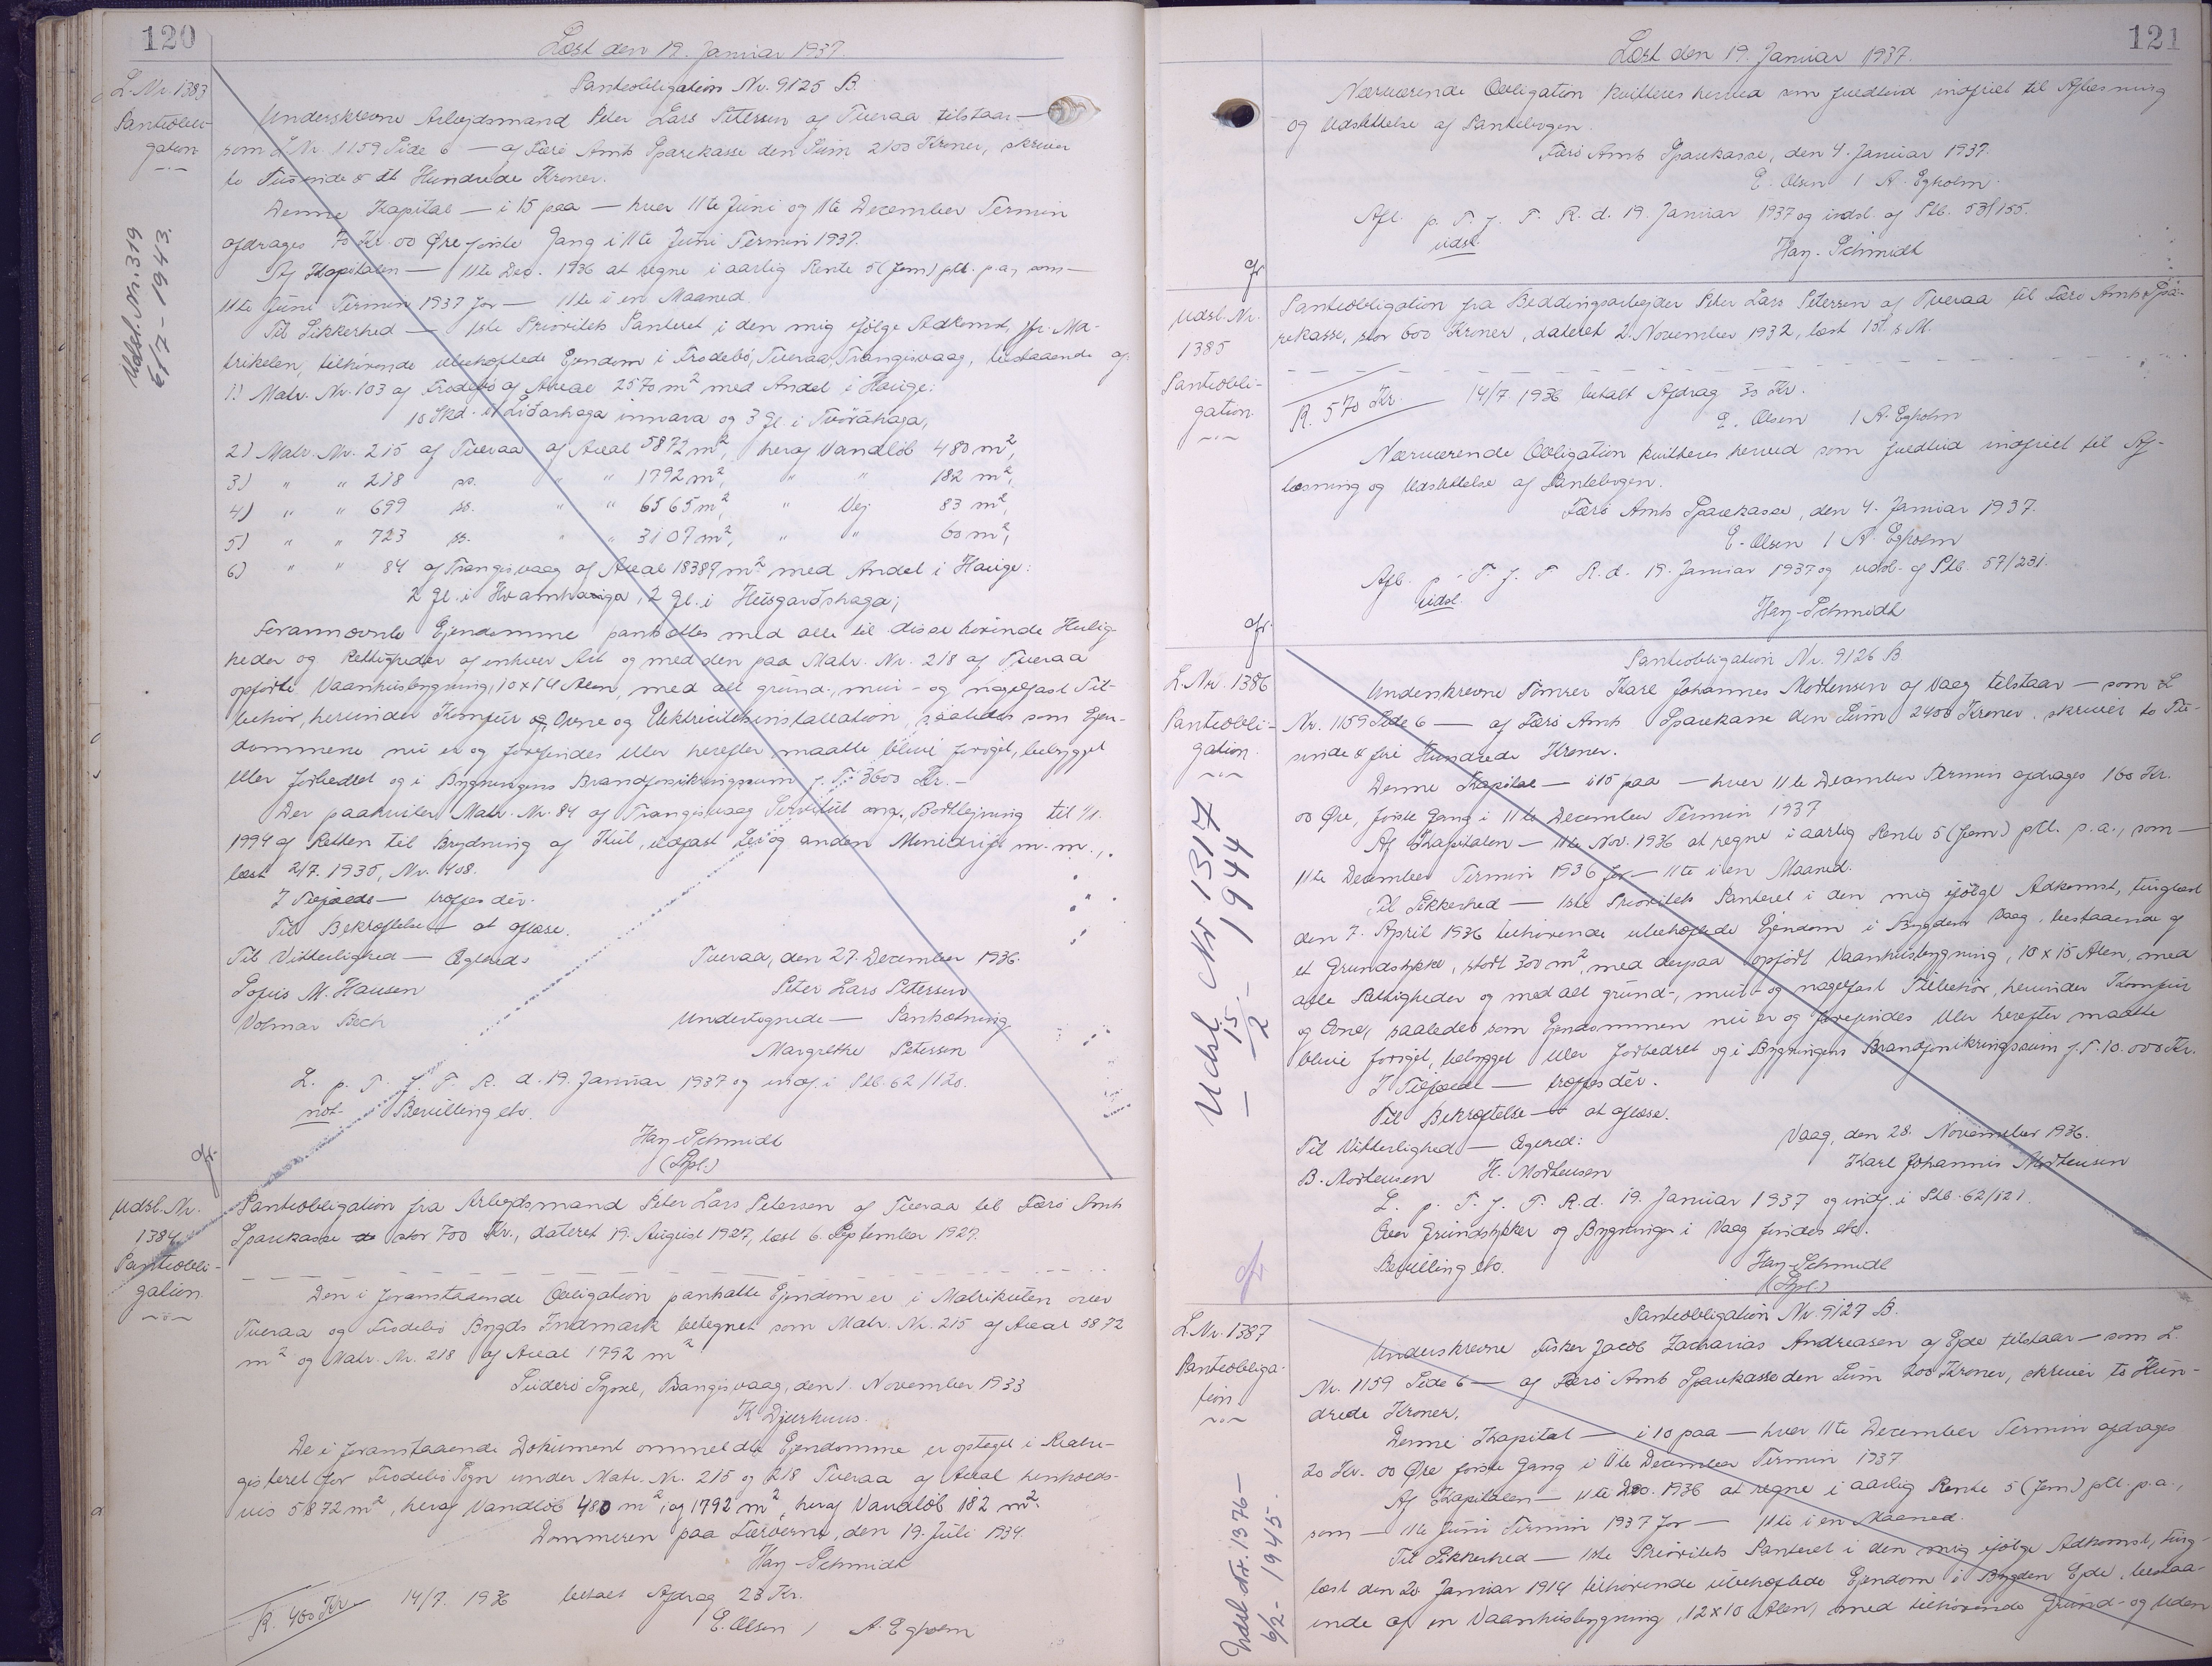 120
Læst den 19. Januar 1937.
L. Nr. 1383
Panteobli-
gation
Udsl. Nr. 319
6/7 - 1943.
Panteobligation Nr. 9125 B.
Underskrevne Arbejdsmand Peter Lars Petersen af Tveraa tilstaar —
som L. Nr. 1159 Side 6 — af Færø Amts Sparekasse den Sum 2100 Kroner, skriver
to Tusinde & et Hundrede Kroner.
Denne Kapital — i 15 paa — hver 11te Juni og 11te December Termin
afdrages 70 Kr. 00 Øre første Gang i 11te Juni Termin 1937.
Af Kapitalen — 11te Dec. 1936 at regne i aarlig Rente 5 (fem) pCt. p.a., som —
11te Juni Termin 1937 for — 11te i en Maaned.
Til Sikkerhed — 1ste Prioritets Panteret i den mig ifølge Adkomst, jfr. Ma-
trikelen, tilhørende ubehæftede Ejendom i Frodebø, Tveraa, Trangisvaag, bestaaende af:
1) Matr. Nr. 103 af Frodebø af Areal 2570 m² med Andel i Hauge:
10 Skd. i Liðarhaga innara og 3 gl. i Tvöráhaga,
2) Matr. Nr. 215 af Tveraa af Areal 5872 m², heraf Vandløb 480 m²,
3) " " 218 ss. " " 1792 m², " " 182 m²,
4) " " 699 ss. " " 6565 m², " Vej 83 m²,
5) " " 723 ss. " " 3107 m², " " 60 m²,
6) " " 84 af Trangisvaag af Areal 18387 m² med Andel i Hauge:
2 gl. i Hvamhauga, 2 gl. i Húsgarðshaga;
Forannævnte Ejendomme pantsættes med alle til disse hørende Herlig-
heder og Rettigheder af enhver Art og med den paa Matr. Nr. 218 af Tveraa
opførte Vaanhusbygning, 10 x 14 Alen, med alt grund-, mur- og nagelfast Til-
behør, herunder Komfur og Ovne og Elektricitetsinstallation, saaledes som Ejen-
dommene nu er og forefindes eller herefter maatte blive forøget, bebygget
eller forbedret og i Bygningens Brandforsikringssum f. T. 3600 Kr. —
Der paahviler Matr. Nr. 84 af Trangisvaag Servitut ang. Bortlejning til 1/1.
1994 af Retten til Brydning af Kul, ildfast Ler og anden Minedrift m. m.,
læst 2/7. 1930, Nr. 408.
I Tilfælde — træffes dér.
Til Bekræftelse — at aflæse.
Til Vitterlighed — Ægtereds
Tveraa, den 27. December 1936.
Sofus M. Hansen
Peter Lars Petersen
Volmar Bech
Undertegnede — Pantsætning
Margrethe Petersen
L. p. T. f. F. R. d. 19. Januar 1937 og indf. i Ptb. 62/120.
not. Bevilling etc.
Hay-Schmidt
(Spl.)
cfr.
Udsl. Nr.
1384
Panteobli-
gation
Panteobligation fra Arbejdsmand Peter Lars Petersen af Tveraa til Færø Amts
Sparekasse stor 700 Kr., dateret 19. August 1927, læst 6. September 1927.
Den i foranstaaende Obligation pantsatte Ejendom er i Matrikulen over
Tveraa og Frodebø Bygds Indmark betegnet som Matr. Nr. 215 af Areal 5872
m² og Matr. Nr. 218 af Areal 1792 m²
Suderø Syssel, Trangisvaag, den 1. November 1933
K. Djurhuus.
De i foranstaaende Dokument ommeldte Ejendomme er optaget i Realre-
gisteret for Frodebø Sogn under Matr. Nr. 215 og 218 Tveraa af Areal henholds-
vis 5872 m², heraf Vandløb 480 m², og 1792 m², heraf Vandløb 182 m².
Dommeren paa Færøerne, den 19. Juli 1934.
Hay-Schmidt
R. 400 Kr. 14/7. 1936 betalt Afdrag 28 Kr.
E. Olsen / A. Egholm
121
Læst den 19. Januar 1937.
Nærværende Obligation kvitteres herved som fuldtud indfriet til Aflæsning
og Udslettelse af Pantebogen.
Færø Amts Sparekasse, den 4. Januar 1937.
E. Olsen / A. Egholm.
Afl. p. T. f. F. R. d. 19. Januar 1937 og udsl. af Ptb. 53/155.
udsl.
Hay-Schmidt
cfr.
Udsl. Nr.
1385
Panteobli-
gation
Panteobligation fra Beddingsarbejder Peter Lars Petersen af Tveraa til Færø Amts Spa-
rekasse, stor 600 Kroner, dateret 2. November 1932, læst 15. s. M.
R. 570 Kr. 14/7. 1936 betalt Afdrag 30 Kr.
E. Olsen / A. Egholm
Nærværende Obligation kvitteres herved som fuldtud indfriet til Af-
læsning og Udslettelse af Pantebogen.
Færø Amts Sparekasse, den 4. Januar 1937.
E. Olsen / A. Egholm
Afl. p. T. f. F. R. d. 19. Januar 1937 og udsl. af Ptb. 57/231.
udsl.
Hay-Schmidt
cfr.
L. Nr. 1386
Panteobli-
gation.
Udsl. Nr 1317
15/2 - 1944
Panteobligation Nr. 9126 B
Underskrevne Tømrer Karl Johannes Mortensen af Vaag tilstaar — som L
Nr. 1159 Side 6 — af Færø Amts Sparekasse den Sum 2400 Kroner, skriver to Tu-
sinde & fire Hundrede Kroner.
Denne Kapital — i 15 paa — hver 11te December Termin afdrages 160 Kr.
00 Øre, første Gang i 11te December Termin 1937
Af Kapitalen — 11te Nov. 1936 at regne i aarlig Rente 5 (fem) pCt. p.a., som —
11te December Termin 1936 for — 11te i en Maaned.
Til Sikkerhed — 1ste Prioritets Panteret i den mig ifølge Adkomst, tinglæst
den 7. April 1936 tilhørende ubehæftede Ejendom i Bygden Vaag, bestaaende af
et Grundstykke, stort 300 m², med derpaa opført Vaanhusbygning, 10 x 15 Alen, med
alle Rettigheder og med alt grund-, mur- og nagelfast Tilbehør, herunder Komfur
og Ovne, saaledes som Ejendommen nu er og forefindes eller herefter maatte
blive forøget, bebygget eller forbedret og i Bygningens Brandforsikringssum f. T. 10.000 Kr.
I Tilfælde — træffes dér.
Til Bekræftelse — at aflæse.
Til Vitterlighed — Ægtered:
Vaag, den 28. November 1936.
B. Mortensen H. Mortensen
Karl Johannes Mortensen
L. p. T. f. F. R. d. 19. Januar 1937 og indf. i Ptb. 62/121.
Over Grundstykker og Bygninger i Vaag findes etc.
Bevilling etc.
Hay-Schmidt
(Spl.)
cfr
L. Nr. 1387
Panteobliga-
tion
Udsl. Nr. 1376 —
6/2 - 1945.
Panteobligation Nr. 9127 B.
Underskrevne Fisker Jacob Zacharias Andreasen af Ejde tilstaar — som L.
Nr. 1159 Side 6 — af Færø Amts Sparekasse den Sum 200 Kroner, skriver to Hun-
drede Kroner.
Denne Kapital — i 10 paa — hver 11te December Termin afdrages
20 Kr. 00 Øre første Gang i 11te December Termin 1937
Af Kapitalen — 11te Dec. 1936 at regne i aarlig Rente 5 (fem) pCt. p.a.,
som — 11te Juni Termin 1937 for — 11te i en Maaned.
Til Sikkerhed — 1ste Prioritets Panteret i den mig ifølge Adkomst, ting-
læst den 20. Januar 1914 tilhørende ubehæftede Ejendom i Bygden Ejde, bestaa-
ende af en Vaanhusbygning, 12 x 10 Alen, med tilhørende Grund- og uden